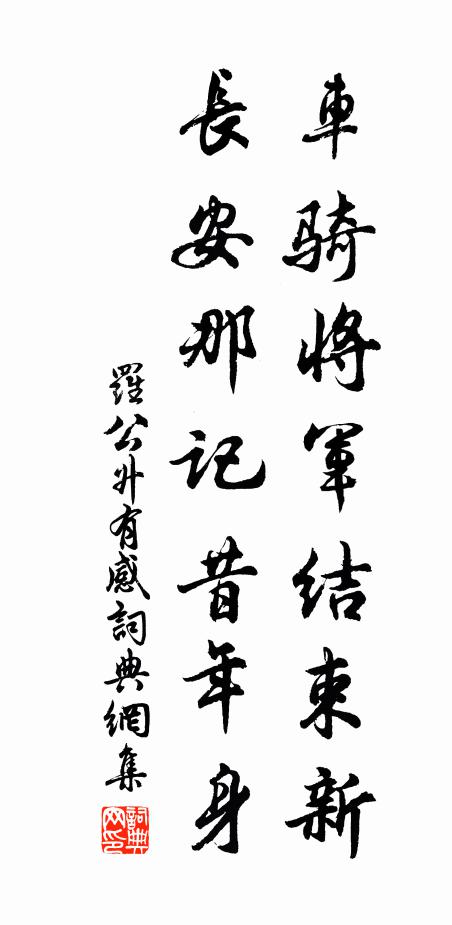 車騎將軍結束新
長安那記昔年身
羅公升有感詞典網集
詞典网印